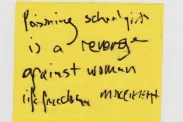 Poisoning school girls
is a revenge
against woman
life freedom movement